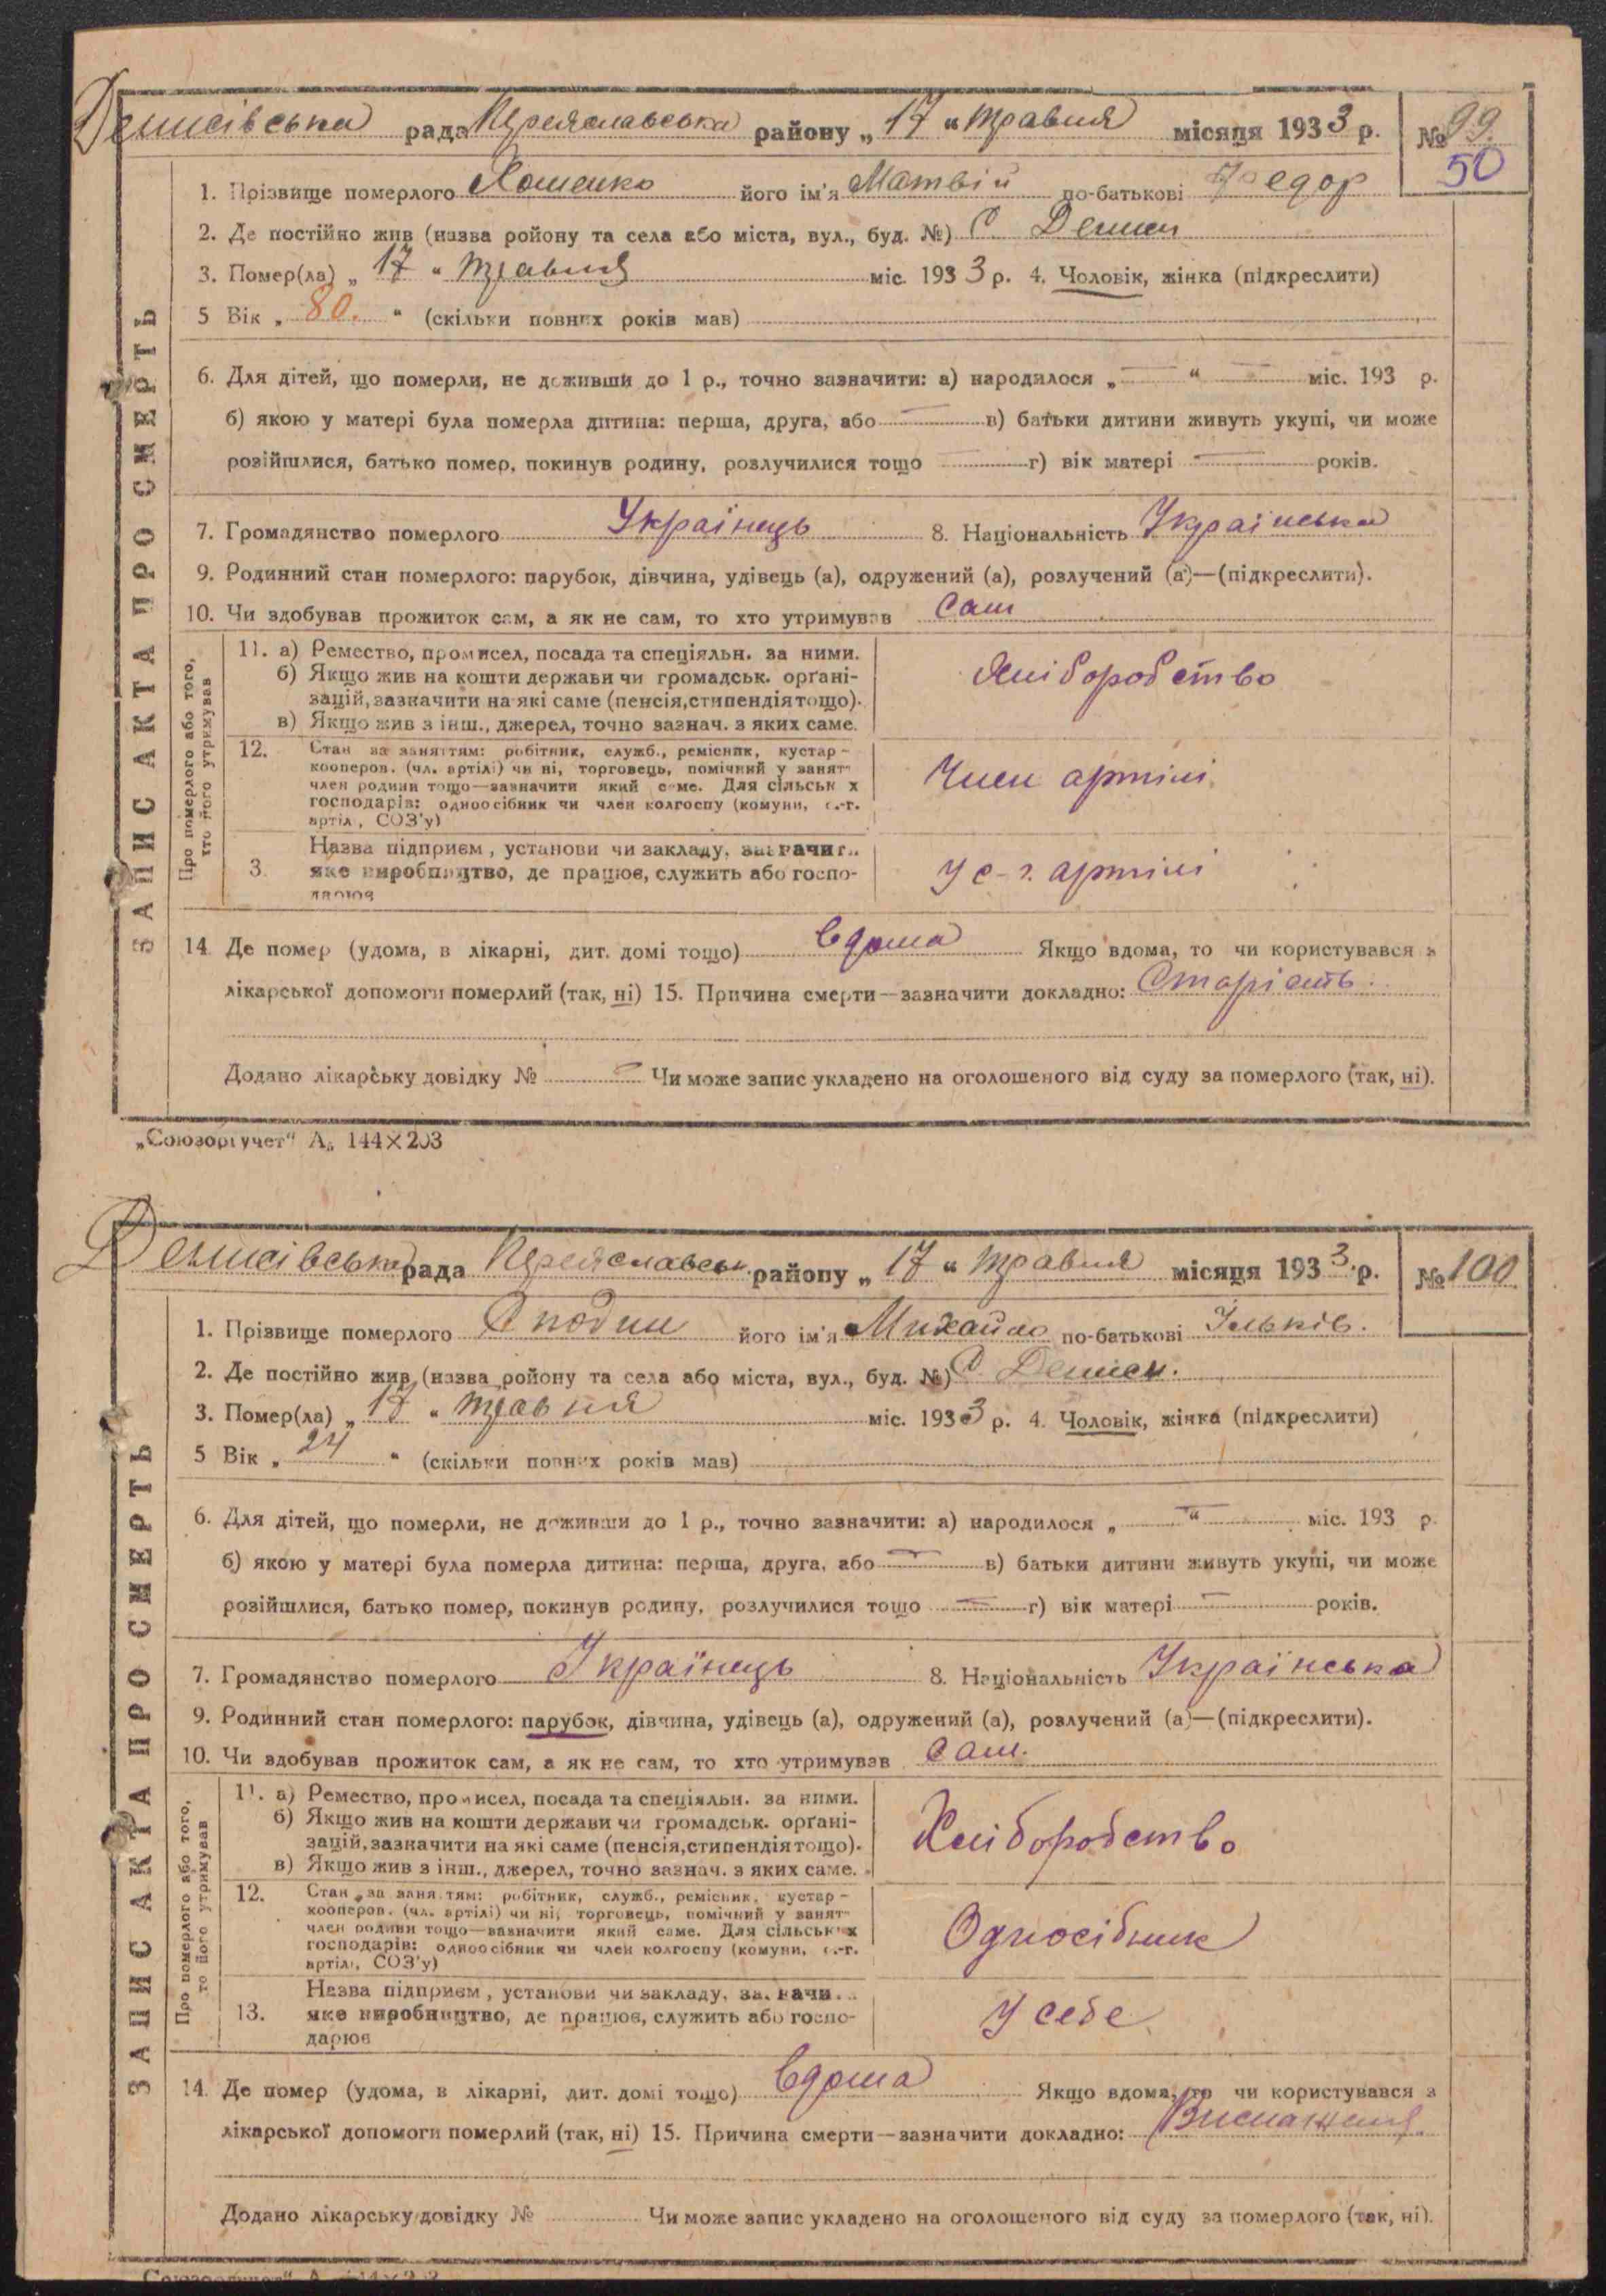 Денисівська рада Переяславська району „ 17 “ травня місяця 1933 р. № 99
50
1. Прізвище померлого Хоменко його ім'я Матвій по-батькові Федор
2. Де постійно жив (назва ройону та села або міста, вул., буд. №) С. Дениси
3. Помер(ла) „ 17 “ травня міс. 1933 р. 4. Чоловік, жінка (підкреслити)
5 Вік „ 80. “ (скільки повних років мав)
6. Для дітей, що померли, не доживши до 1 р., точно зазначити: а) народилося „ — “ — міс. 193 р.
б) якою у матері була померла дитина: перша, друга, або — в) батьки дитини живуть укупі, чи може
розійшлися, батько помер, покинув родину, розлучилися тощо — г) вік матері — років.
7. Громадянство померлого Українець 8. Національність Українська
9. Родинний стан померлого: парубок, дівчина, удівець (а), одружений (а), розлучений (а)—(підкреслити).
10. Чи здобував прожиток сам, а як не сам, то хто утримував Сам
ЗАПИС АКТА ПРО СМЕРТЬ
Про померлого або того,
хто його утримував
11. а) Ремество, промисел, посада та спеціяльн. за ними.
б) Якщо жив на кошти держави чи громадськ. орґані-
зацій, зазначити на які саме (пенсія, стипендія тощо).
в) Якщо жив з інш., джерел, точно зазнач. з яких саме.
Хліборобство
12. Стан за заняттям: робітник, служб., ремісник, кустар-
кооперов. (чл. артілі) чи ні, торговець, помічний у занят-
член родини тощо—зазначити який саме. Для сільськ х
господарів: одноосібник чи член колгоспу (комуни, с.-г.
артіл, СОЗ'у)
Член артілі
3. Назва підприєм, установи чи закладу, зазначит..
яке виробництво, де працює, служить або госпо-
дарює
У с-г. артілі
14. Де помер (удома, в лікарні, дит. домі тощо) вдома Якщо вдома, то чи користувався з
лікарської допомоги померлий (так, ні) 15. Причина смерти—зазначити докладно: Старість.
Додано лікарську довідку № — Чи може запис укладено на оголошеного від суду за померлого (так, ні).
„Союзоргучет“ А₅ 144×203
Денисівська рада Переяславськ. району „ 17 “ травня місяця 1933 р. № 100
1. Прізвище померлого його ім'я Михайло по-батькові Ільків.
2. Де постійно жив (назва ройону та села або міста, вул., буд. №) С. Дениси.
3. Помер(ла) „ 17 “ травня міс. 1933 р. 4. Чоловік, жінка (підкреслити)
5 Вік „ 24 “ (скільки повних років мав)
6. Для дітей, що померли, не доживши до 1 р., точно зазначити: а) народилося „ — “ міс. 193 р.
б) якою у матері була померла дитина: перша, друга, або — в) батьки дитини живуть укупі, чи може
розійшлися, батько помер, покинув родину, розлучилися тощо — г) вік матері — років.
7. Громадянство померлого Українець 8. Національність Українська
9. Родинний стан померлого: парубок, дівчина, удівець (а), одружений (а), розлучений (а)—(підкреслити).
10. Чи здобував прожиток сам, а як не сам, то хто утримував сам.
ЗАПИС АКТА ПРО СМЕРТЬ
Про померлого або того,
то його утримував
11. а) Ремество, промисел, посада та спеціяльн. за ними.
б) Якщо жив на кошти держави чи громадськ. орґані-
зацій, зазначити на які саме (пенсія, стипендія тощо).
в) Якщо жив з інш., джерел, точно зазнач. з яких саме.
Хліборобство
12. Стан за заняттям: робітник, служб., ремісник, кустар-
кооперов. (чл. артілі) чи ні, торговець, помічний у занят-
член родини тощо—зазначити який саме. Для сільських
господарів: одноосібник чи член колгоспу (комуни, с.-г.
артілі, СОЗ'у)
Односібник
13. Назва підприєм, установи чи закладу, зазначи..
яке виробництво, де працює, служить або госпо-
дарює
У себе
14. Де помер (удома, в лікарні, дит. домі тощо) вдома Якщо вдома, то чи користувався з
лікарської допомоги померлий (так, ні) 15. Причина смерти—зазначити докладно: Виснаження
Додано лікарську довідку № Чи може запис укладено на оголошеного від суду за померлого (так, ні).